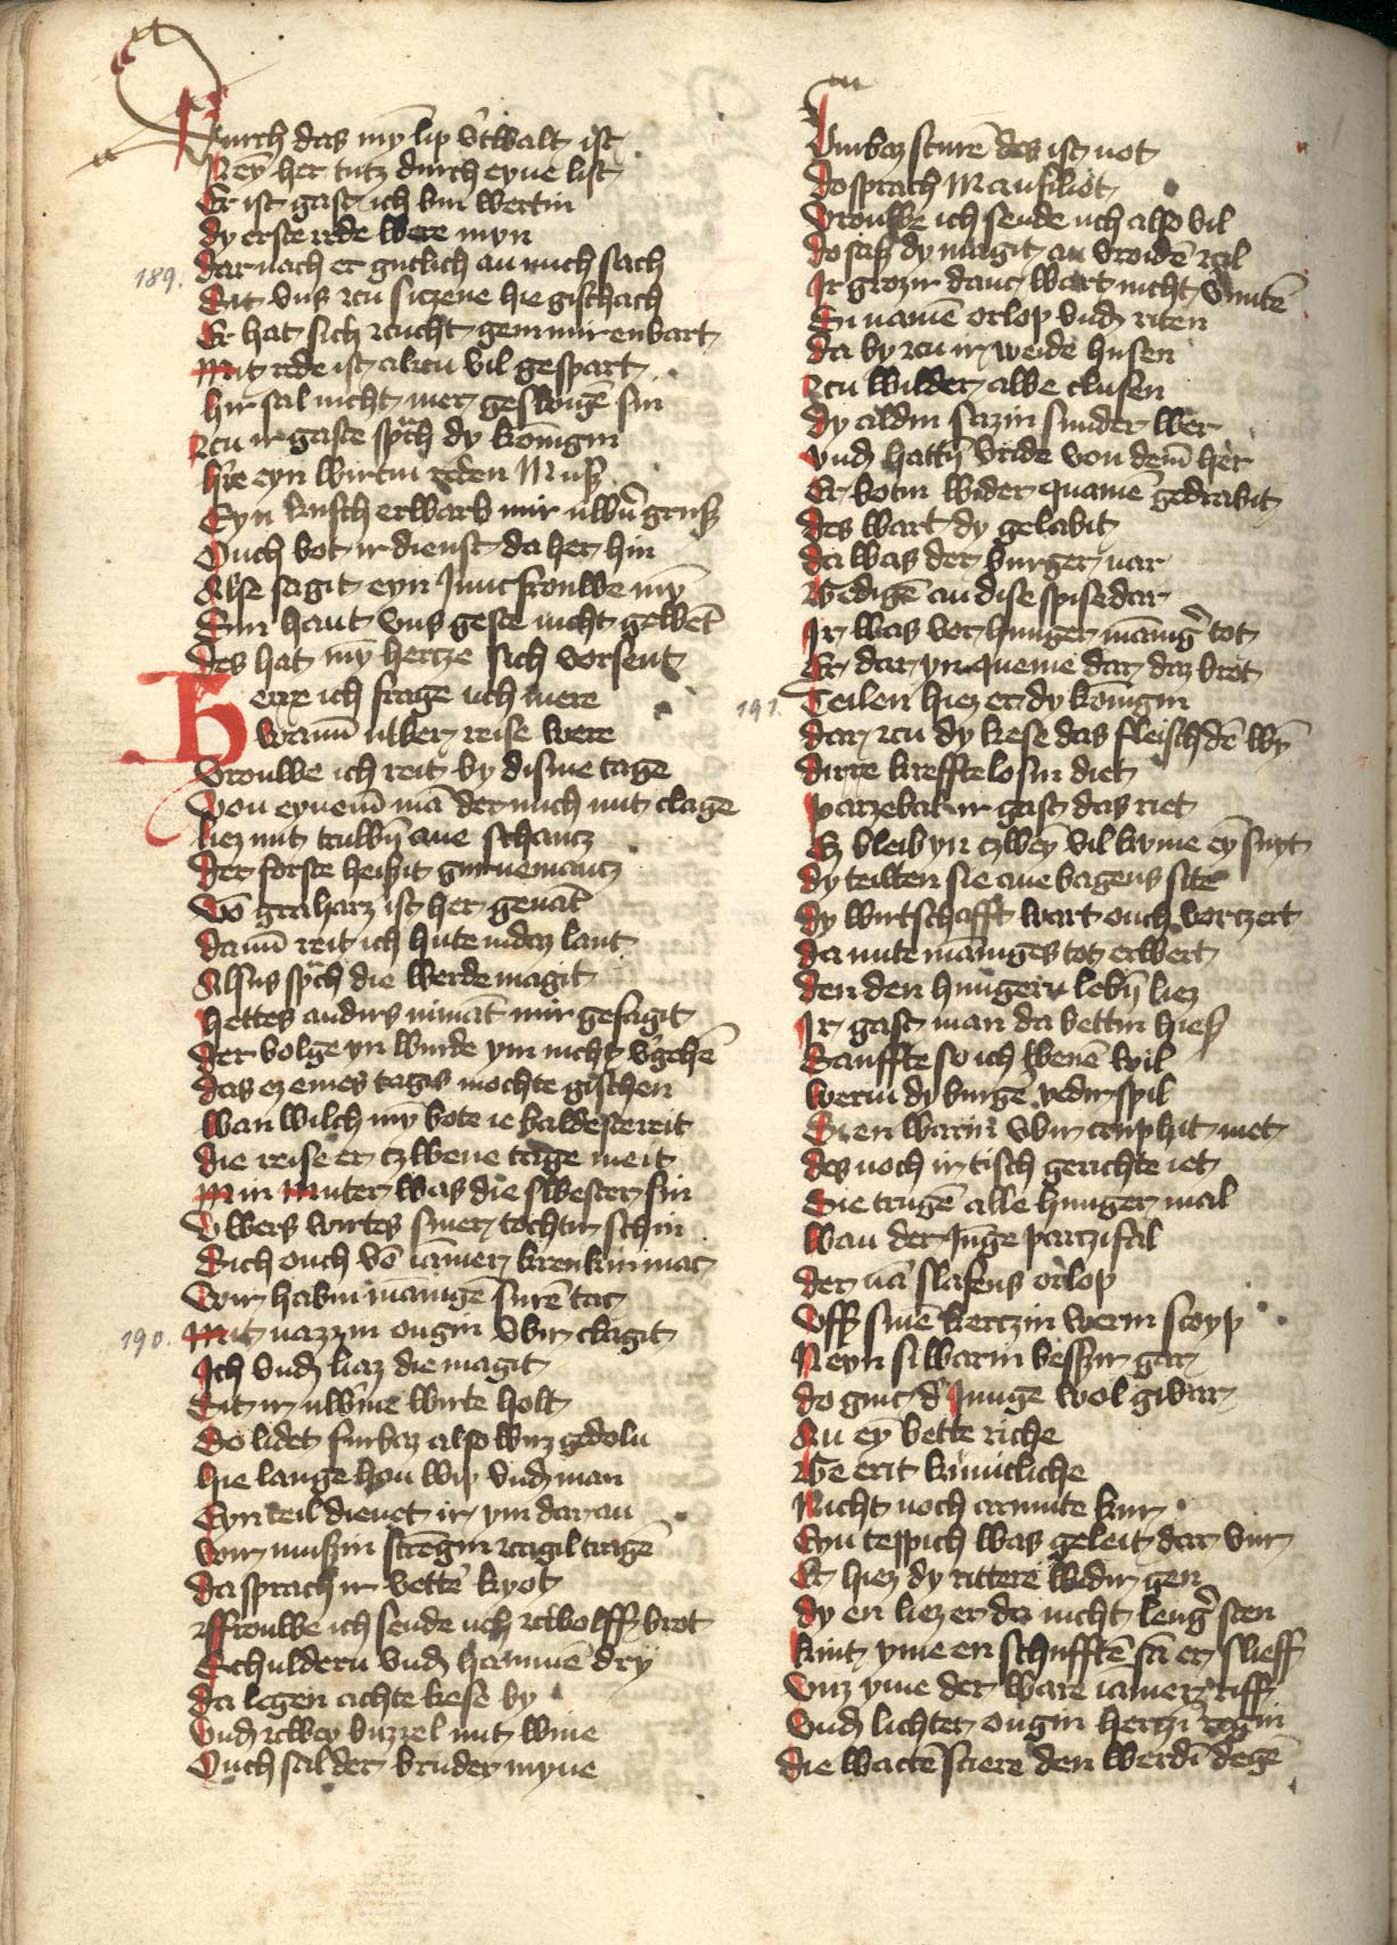 Durch das mȳ lip v̓twalt ist
Neȳ her tutz durch eyne list
Er ist gast ich bin wertin
dy erste rede were myn
189.
dar nach er gutlich an mich sach
Sit vns zcu siczene hie gischach
Er hat sich zcucht gein mir enbart
Mit rede ist alzcu vil gespart
hir sal nicht mer geswigē sin
zcu ir gaste sprch dy konigin
hre eyn wirtin reden Muß
Eyn kusch erwarb mir uwn̄ gruß
Ouch bot ir dienst da her hin
Alse sagit eyn Juncfrouwe mȳ
Sin hant vns geste nicht gewēt
des hat mȳ hertze sich vorsent
Herre ich frage uch mere
wannī uwer reise were
Vrouwe ich reit by disme tage
Von eynem̄ mā der mich mit clage
liez mit truwn̄ ane schantz
der forste heißit gurnemantz
Vō graharz ist her genāt
dannī reit ich hute in daz lant
Alsus sprch die werde magit
hettes andirs nimāt mir gesagit
der volge yn wurde ym nicht v̓gehē
das ez eines tagis mochte gischen
wan wilch mȳ bote ie baldeste reit
die reise er tzwene tage meit
Min Muter was die swester sin
Vwers wirtes siner tochtir schin
Sich ouch vō iāmer krenkin mac
wir habin mānigē surē tac
190.
Mit nazzin ougin vbir clagit
Ich vnd liaz die magit
Sit ir uwīne wirte holt
So lidet furbaz also wirz gedoln
hie lange hon wip vnd man
Eyn teil dienet ir ym daran
wir mußin strēgin zcagil tragē
da sprach ir vetter kyot
Frouwe ich sende uch zcwolff brot
Schuldern vnd hammē dry
da legen achte kese by
vnd zcwey buzzel mit wine
Ouch sal der bruder myne
Vmbaz sturē des ist not
do sprach Manfiliot
Vrouwe ich sende uch also vil
do saß dy magit an vroidē zcil
Ir grozir danc wart nicht v̓mitē
Si namē orlop vnd riten
da by zcu ir weide husen
zcu wilder albe clusen
dy aldin sazin sunder wer
vnd hattn̄ vride von dem̄ her
Er botin wider quamē gedrabit
des wart dy gelabit
da was der burger nar
Gedigē an dise spise dar
Ir was vor hunger mānig̓ tot
Er dar yn queme dar daz brot
191.
Teilen hiez er dy konigin
dar zcu dy kese das fleisch dē wȳ
dirre krefftelosin diet
parzebal ir gast das riet
Ez bleib yn tzwēy vil kyme eȳ snyt
dy teilten sie ane bagens site
dy wirtschafft wart ouch vortzert
da mite māniges tot erwert
den den hungern lebn̄ liez
Ir gast man da bettin hieß
Sanffte so ich wenē wil
werin dy burgē vedir spil
Si en warin vbir cruphit niet
des noch ir tisch gerichte iet
Sie trugē alle hunger mal
wan der Jūge partzifal
der nā slafens orlop
Vff sinē kertzin werin scoyp
Neyn si warin beszir gar
do ginc d̓ Junge wol givar
An eȳ bette riche
Ge erit kūnicliche
Nicht noch armute kur
Eyn teppich was geleit dar vur
Er hiez dy rittere widir gen
dy en liez er da nicht leng̓ sten
kint yme en schufftē sā er slieff
Vnz yme der ware iāmer riff
Vnd lichter ougin hertzī regin
die wactē sciere den werdī degē